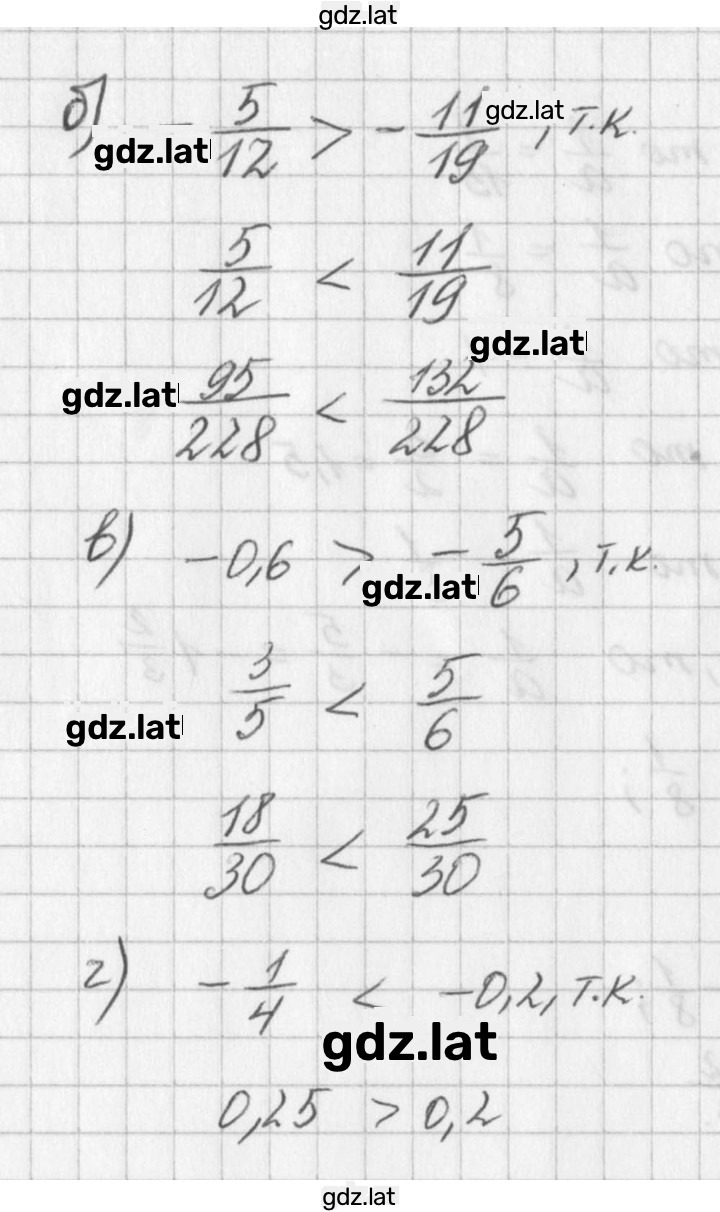 gdz.lat
б) - 5/12 > - 11/19, т.к.
gdz.lat
gdz.lat
5/12 < 11/19
gdz.lat
95/228 < 132/228
gdz.lat
в) -0,6 > - 5/6, т.к.
gdz.lat
3/5 < 5/6
gdz.lat
18/30 < 25/30
г) - 1/4 < -0,2, т.к.
gdz.lat
0,25 > 0,2
gdz.lat